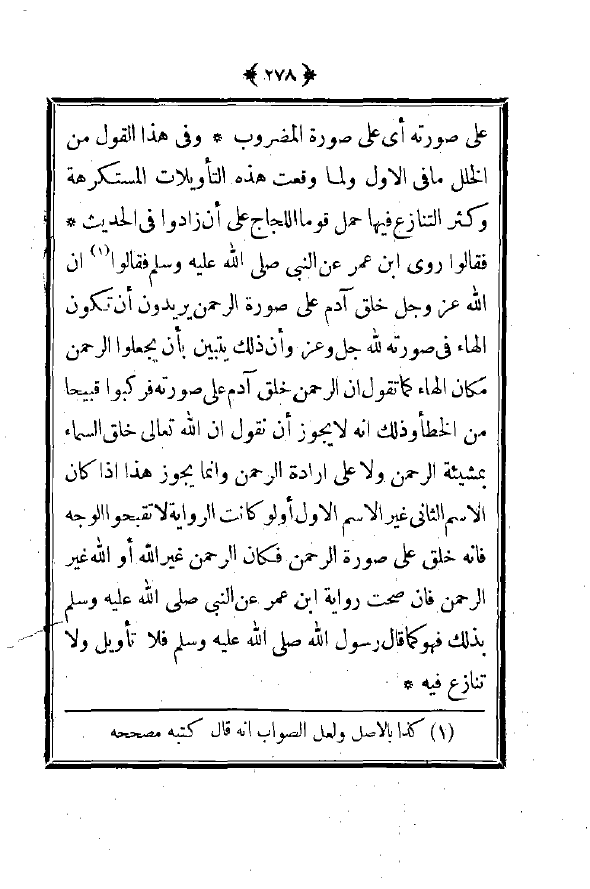 ﴿ ٢٧٨ ﴾
على صورته أى على صورة المضروب * وفى هذا القول من
الخلل مافى الاول ولما وقعت هذه التأويلات المستكرهة
وكثر التنازع فيها حمل قوما اللجاج على أن زادوا فى الحديث *
فقالوا روى ابن عمر عن النبى صلى الله عليه وسلم فقالوا (١) ان
الله عز وجل خلق آدم على صورة الرحمن يريدون أن تكون
الهاء فى صورته لله جل وعز وأن ذلك يتبين بأن يجعلوا الرحمن
مكان الهاء كما تقول ان الرحمن خلق آدم على صورته فركبوا قبيحا
من الخطأ وذلك انه لا يجوز أن نقول ان الله تعالى خلق السماء
بمشيئة الرحمن ولا على ارادة الرحمن وانما يجوز هذا اذا كان
الاسم الثانى غير الاسم الاول أو لو كانت الرواية لا تقبحوا الوجه
فانه خلق على صورة الرحمن فكان الرحمن غير الله أو الله غير
الرحمن فان صحت رواية ابن عمر عن النبى صلى الله عليه وسلم
بذلك فهو كما قال رسول الله صلى الله عليه وسلم فلا تأويل ولا
تنازع فيه *
(١) كذا بالاصل ولعل الصواب انه قال كتبه مصححه